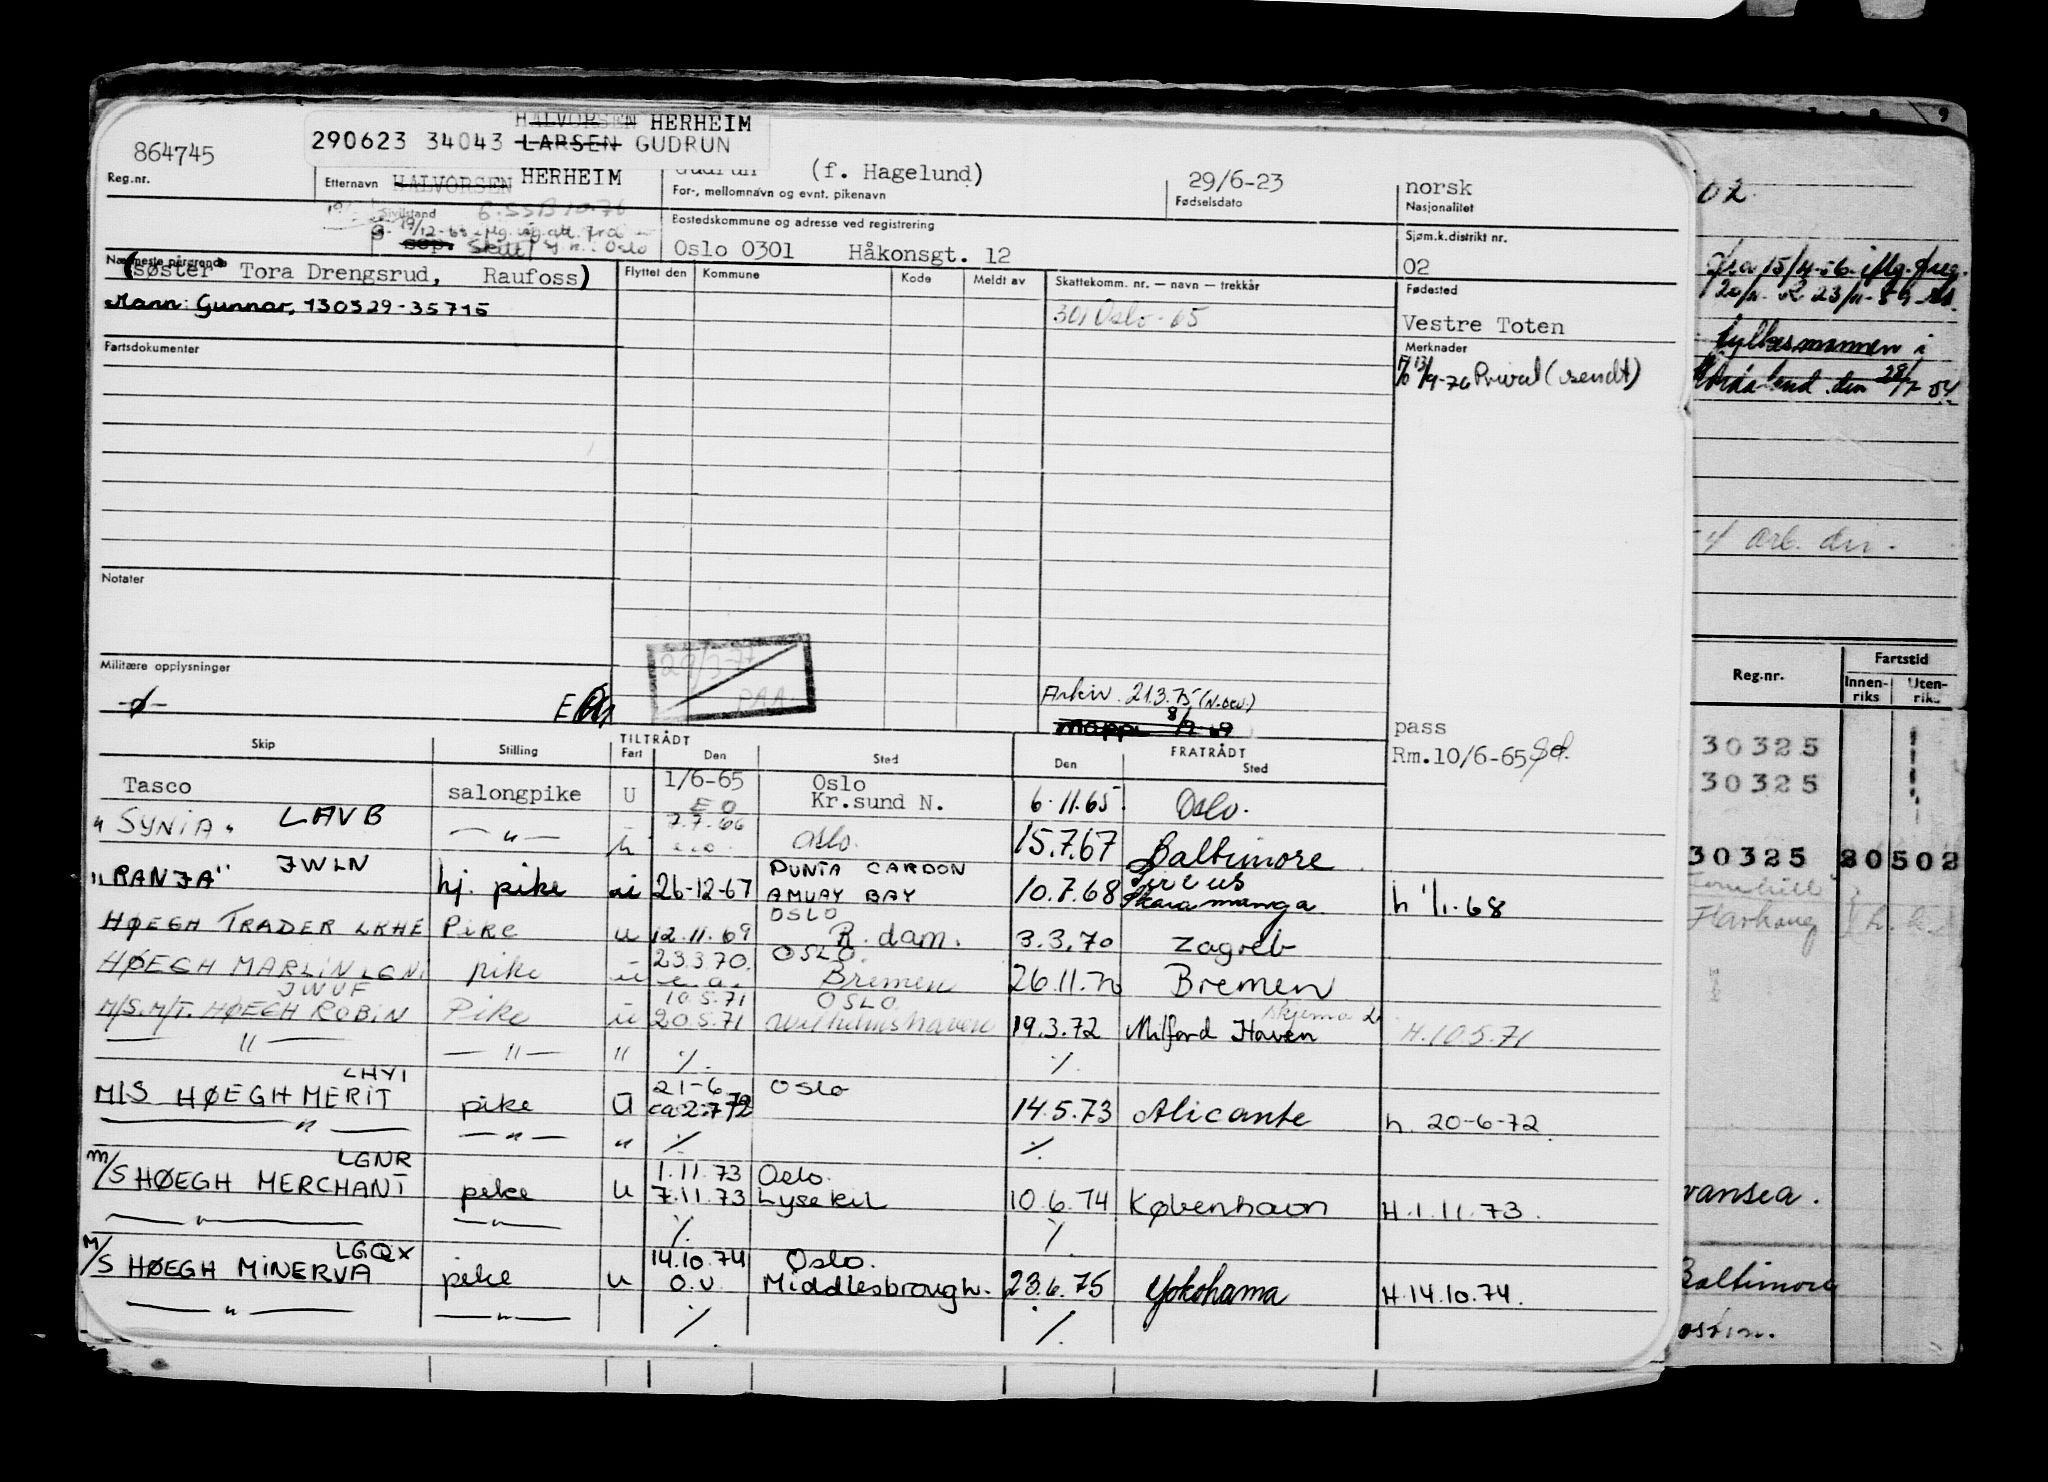 HALVORSEN HERHEIM
290623 34043 LARSEN GUDRUN
864745
Reg.nr.
Etternavn HALVORSEN HERHEIM
Gudrun (f. Hagelund)
For-, mellomnavn og evnt. pikenavn
29/6-23
Fødselsdato
norsk
Nasjonalitet
Sivilstand
6.SSB 10.76
sep.
Bostedskommune og adresse ved registrering
Oslo 0301 Håkonsgt. 12
Sjøm.k.distrikt nr.
02
Nærmeste pårørende
(søster Tora Drengsrud, Raufoss)
Mann: Gunnar, 130329-35715
Flyttet den Kommune Kode Meldt av
Skattekomm. nr. — navn — trekkår
301 Oslo-65
Fødested
Vestre Toten
Fartsdokumenter
Merknader
13/9-76 Privat (sendt)
Notater
Militære opplysninger
-ø-
29/3-77
PAA
Arkiv. 21.3.75
Mappe 8/9 69
pass
Rm.10/6-65
Skip Stilling TILTRÅDT Fart Den Sted FRATRÅDT Den Sted
Tasco salongpike U 1/6-65 Oslo Kr.sund N. 6.11.65 Oslo.
"SYNIA" LAVB — " — h 7.7.66 Oslo. 15.7.67 Baltimore
"RANJA" JWLN hj. pike ui 26-12-67 PUNTA CARDON AMUAY BAY 10.7.68 Skaramanga h 1/1-68
HØEGH TRADER LKHE Pike u 12.11.69 OSLO R.dam. 3.3.70 Zagreb
HØEGH MARLIN pike u 23.3.70. OSLO. Bremen 26.11.70 Bremen
M/S. M/T. HØEGH ROBIN JWUF Pike u 10.5.71 20.5.71 OSLO Wilhelmshaven 19.3.72 Milford Haven Skjema H.10.5.71
— " — — " — " ./. ./.
M/S HØEGH MERIT LHYI pike U 21-6 ca 2.7.72 Oslo 14.5.73 Alicante h. 20-6-72
— " — — " — " ./. ./.
M/S HØEGH MERCHANT LGNR pike U 1.11.73 7.11.73 Oslo. Lysekil 10.6.74 København H.1.11.73.
— " — — " — ./. ./.
M/S HØEGH MINERVA LGQX pike u 14.10.74 O.U. Oslo. Middlesbrough. 23.6.75 Yokohama H.14.10.74.
— " — — " — ./. ./.
02.
fra 15/4-56 iflg.
fylkesmannen i
Hordaland den
4 arb. div.
Reg.nr. Fartstid
Innenriks Utenriks
30325
30325
30325 20502
Baltimore